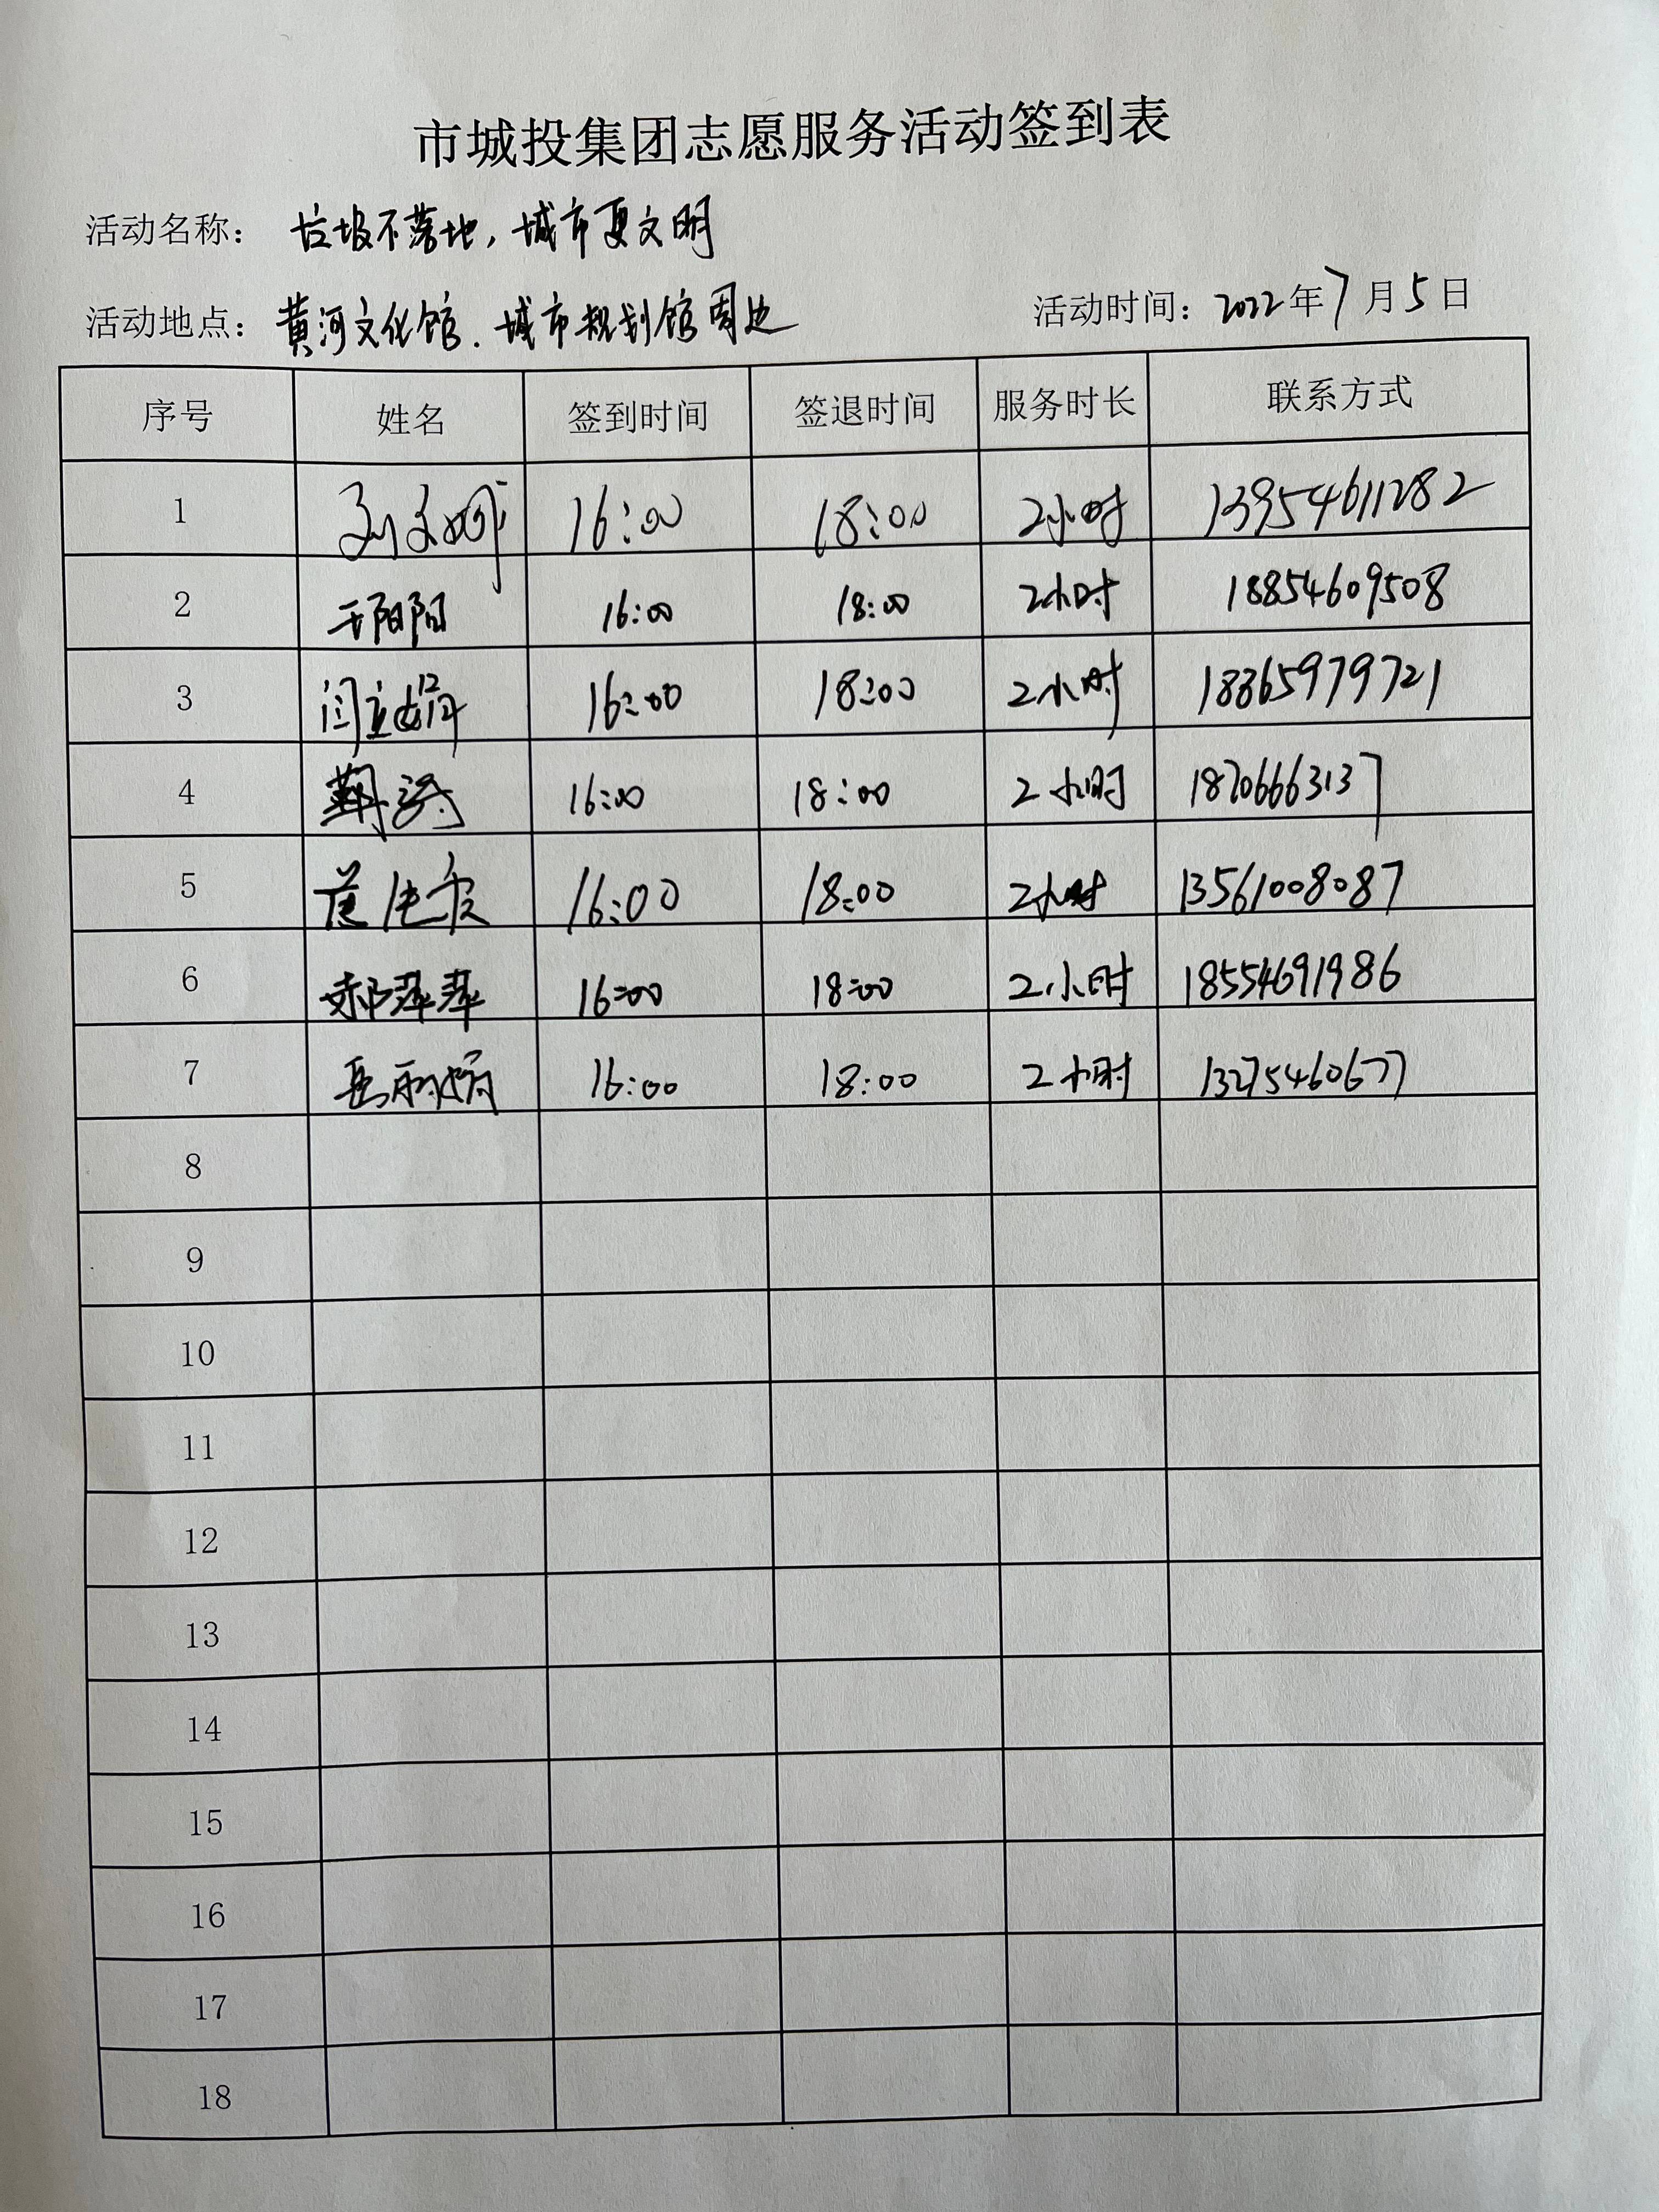 市城投集团志愿服务活动签到表
活动名称： 垃圾不落地，城市更文明
活动地点： 黄河文化馆、城市规划馆周边 活动时间：2022年7月5日
序号 姓名 签到时间 签退时间 服务时长 联系方式
1 16:00 18:00 2小时 13954611282
2 于阳阳 16:00 18:00 2小时 18854609508
3 16:00 18:00 2小时 18865979721
4 靳涛 16:00 18:00 2小时 18706663137
5 16:00 18:00 2小时 13561008087
6 郝翠翠 16:00 18:00 2小时 18554691986
7 岳丽娟 16:00 18:00 2小时 13275460677
8
9
10
11
12
13
14
15
16
17
18